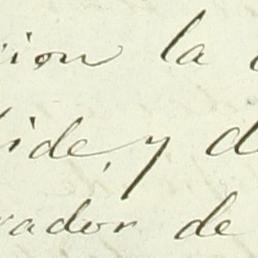 cion la
ide, y d
rador de